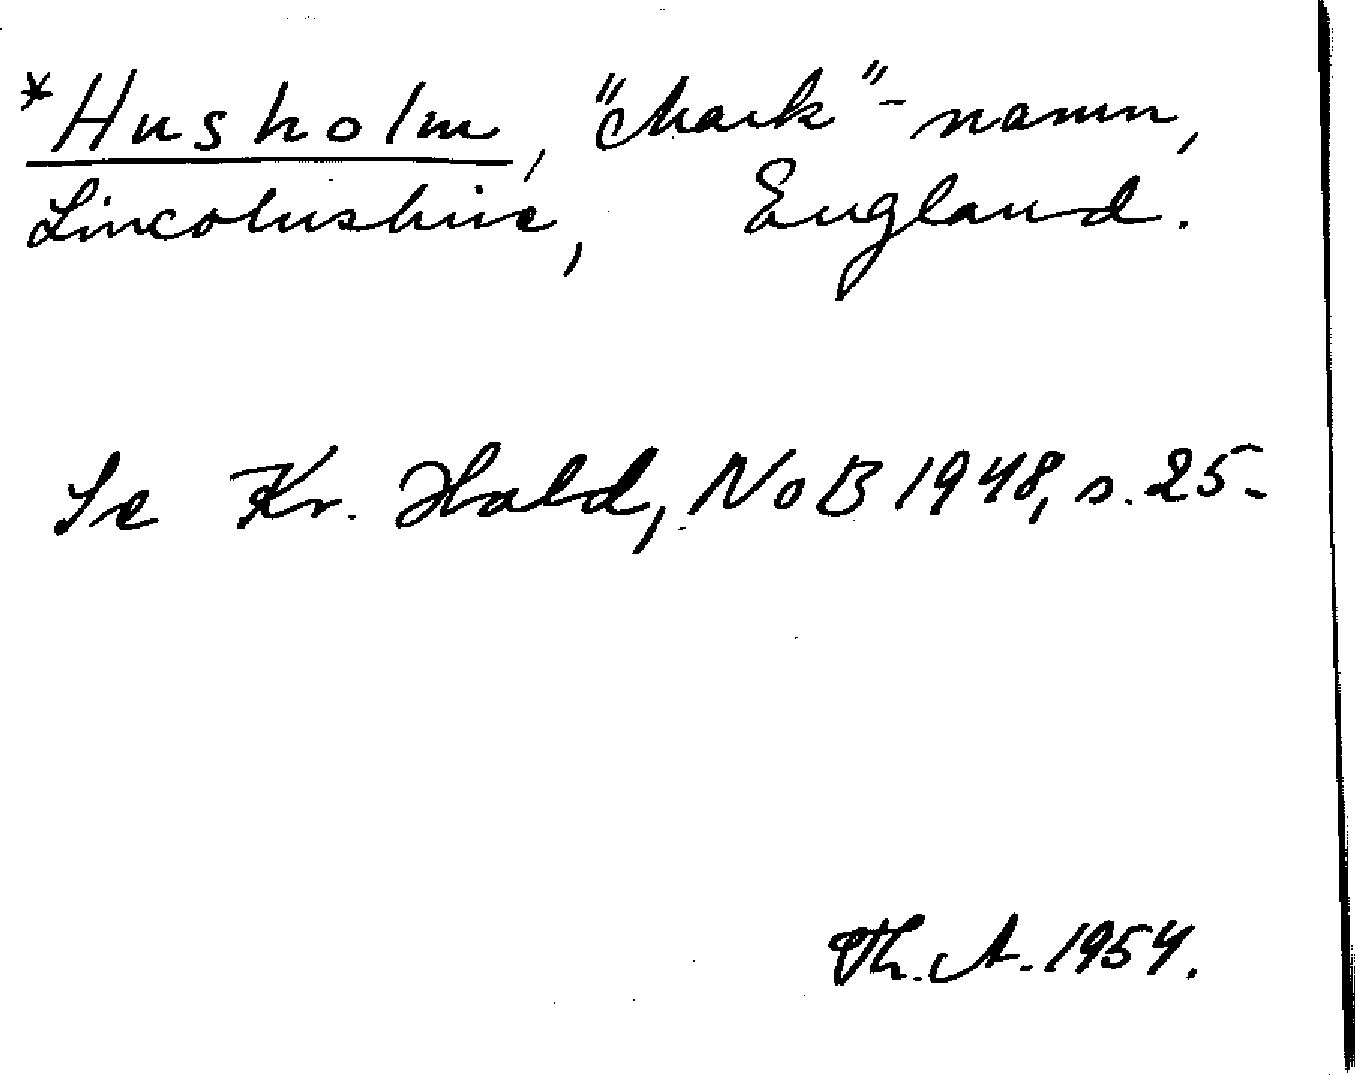 *Husholm, "Mark"-namn,
Lincolnshire, England.
Se Kr. Hald, NoB 1948, s. 25-
Th. A. 1954.